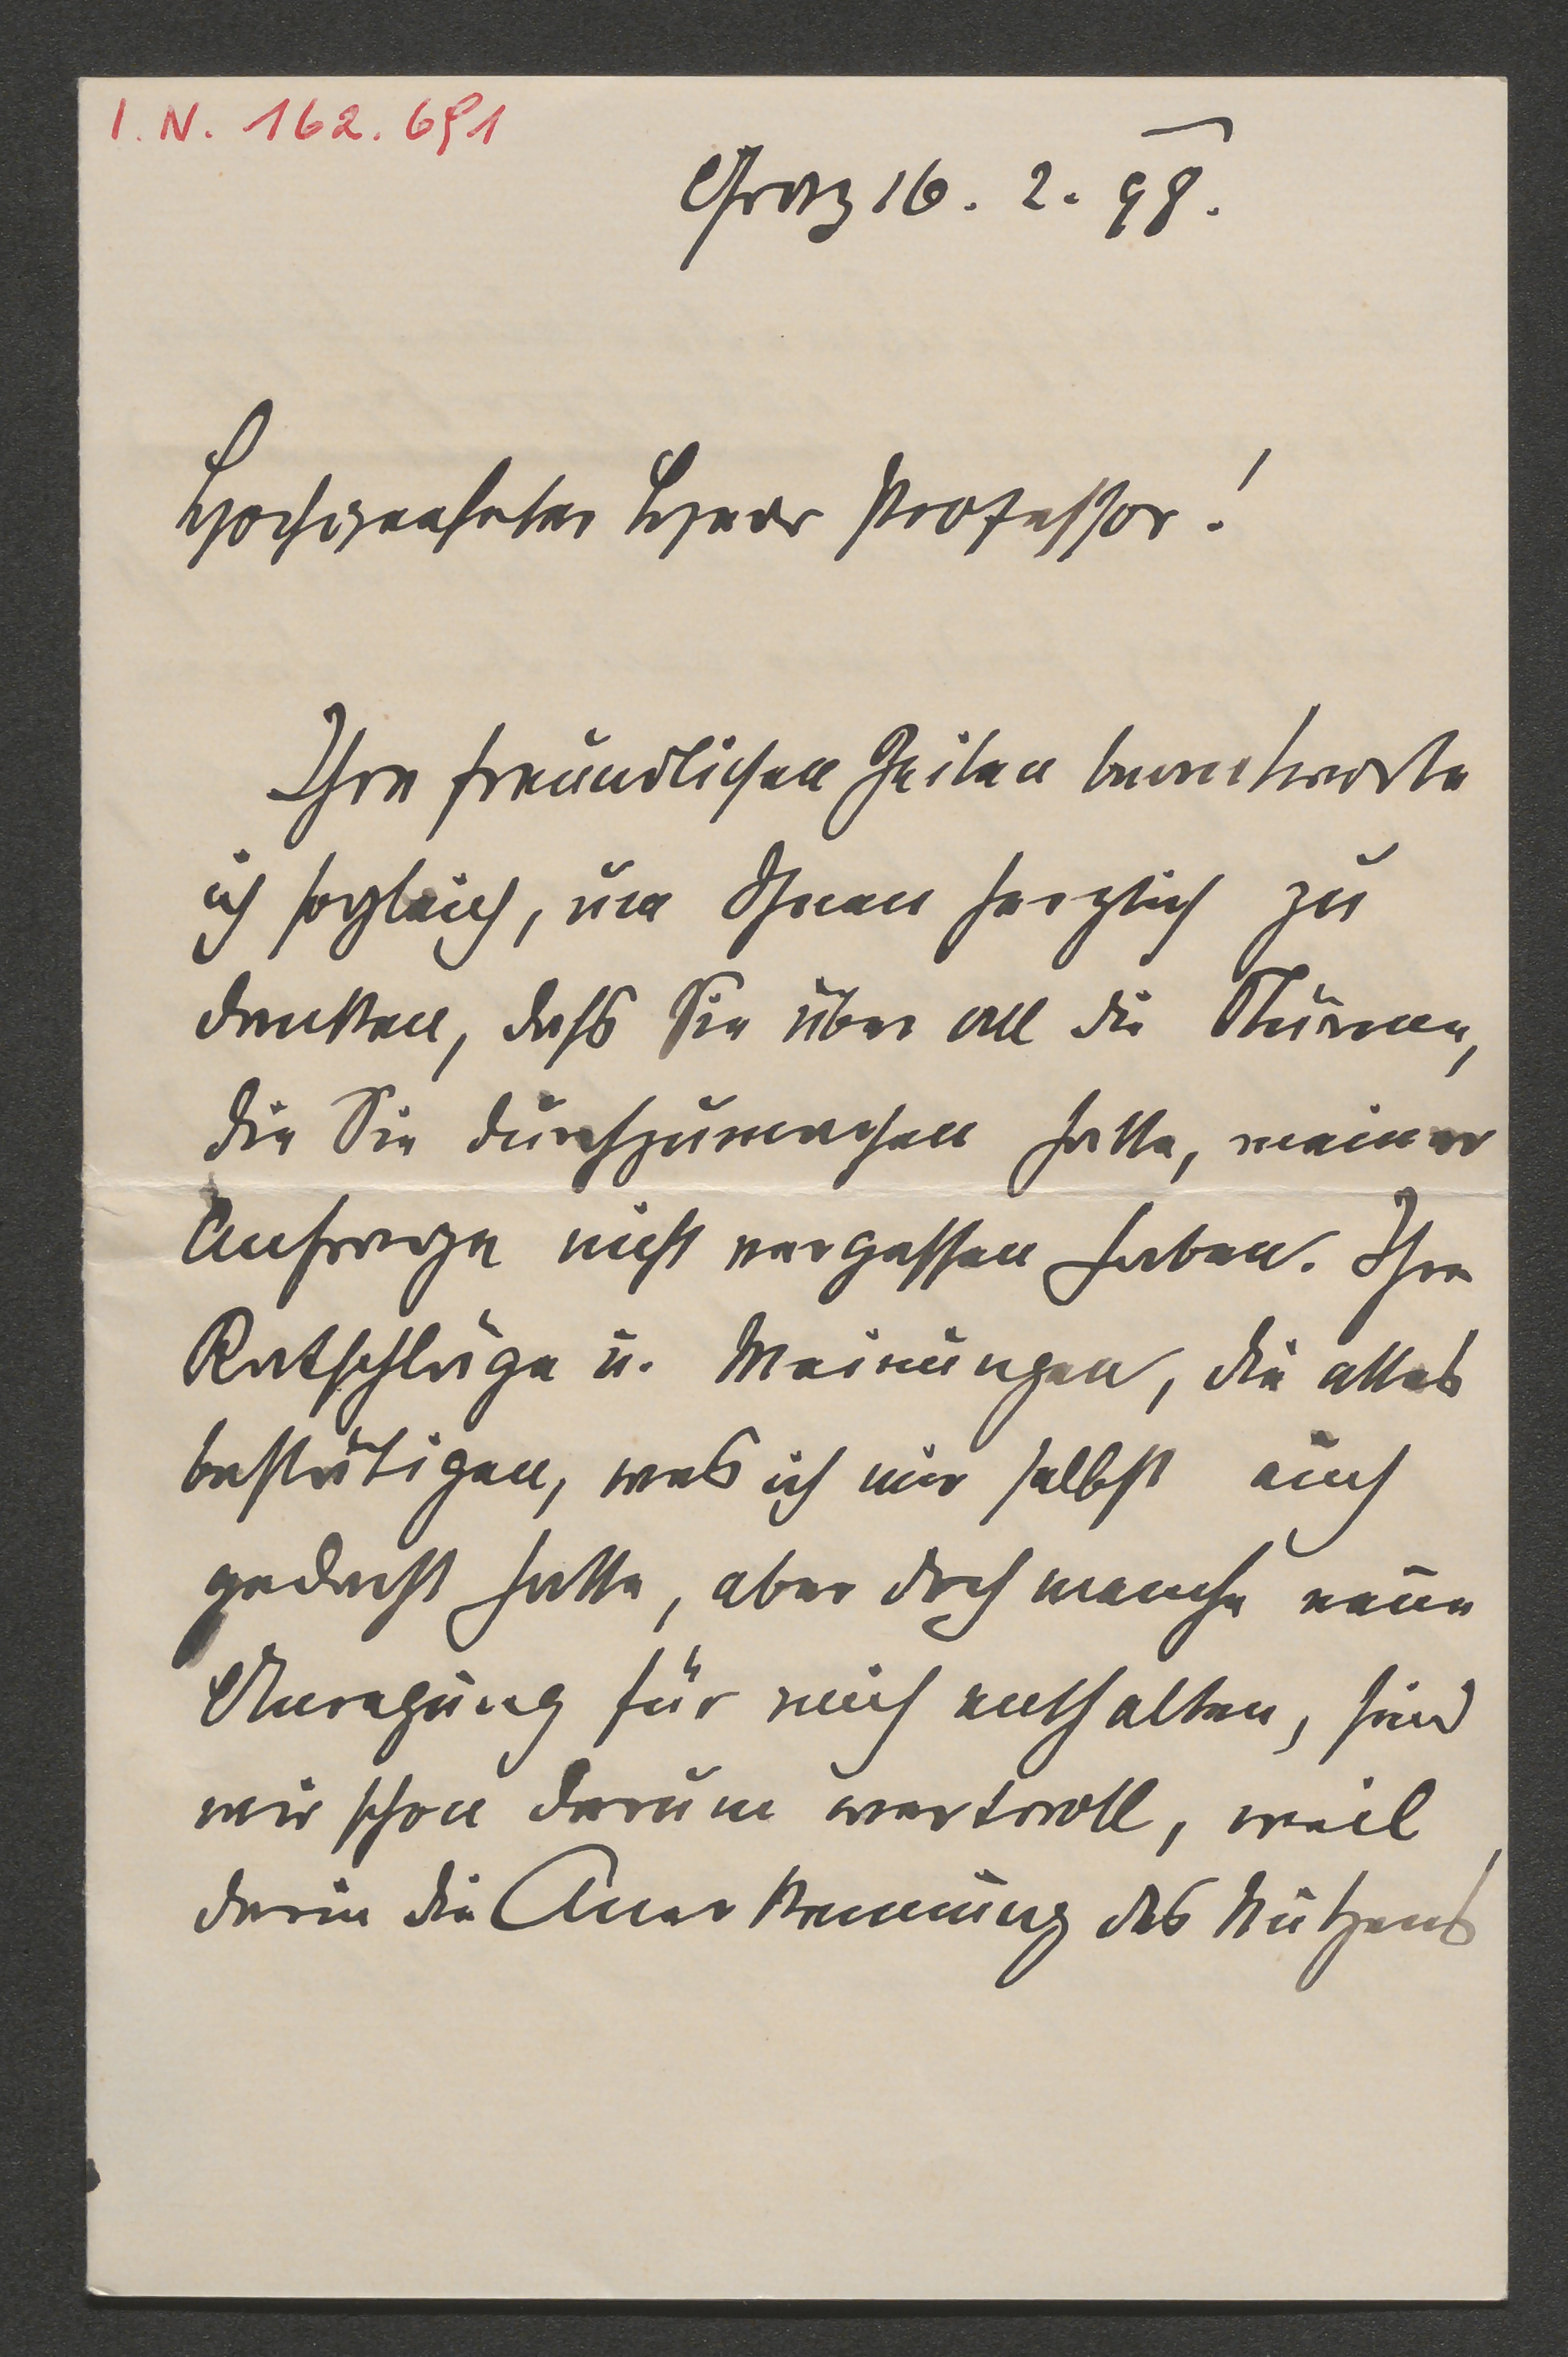 I.N. 162.691
Graz 16. 2. 98.
Hochgeehrter Herr Professor!
Ihre freundlichen Zeilen beantworte
ich sogleich, um Ihnen herzlich zu
danken, dass Sie über all die Stürme,
die Sie durchzumachen hatte, meiner
Anfrage nicht vergessen haben. Ihre
Ratschläge u. Meinungen, die alles
bestätigen, was ich mir selbst auch
gedacht hatte, aber doch manche neue
Anregung für mich enthalten, sind
mir schon darum wertvoll, weil
darin die Anerkennung des Nutzens